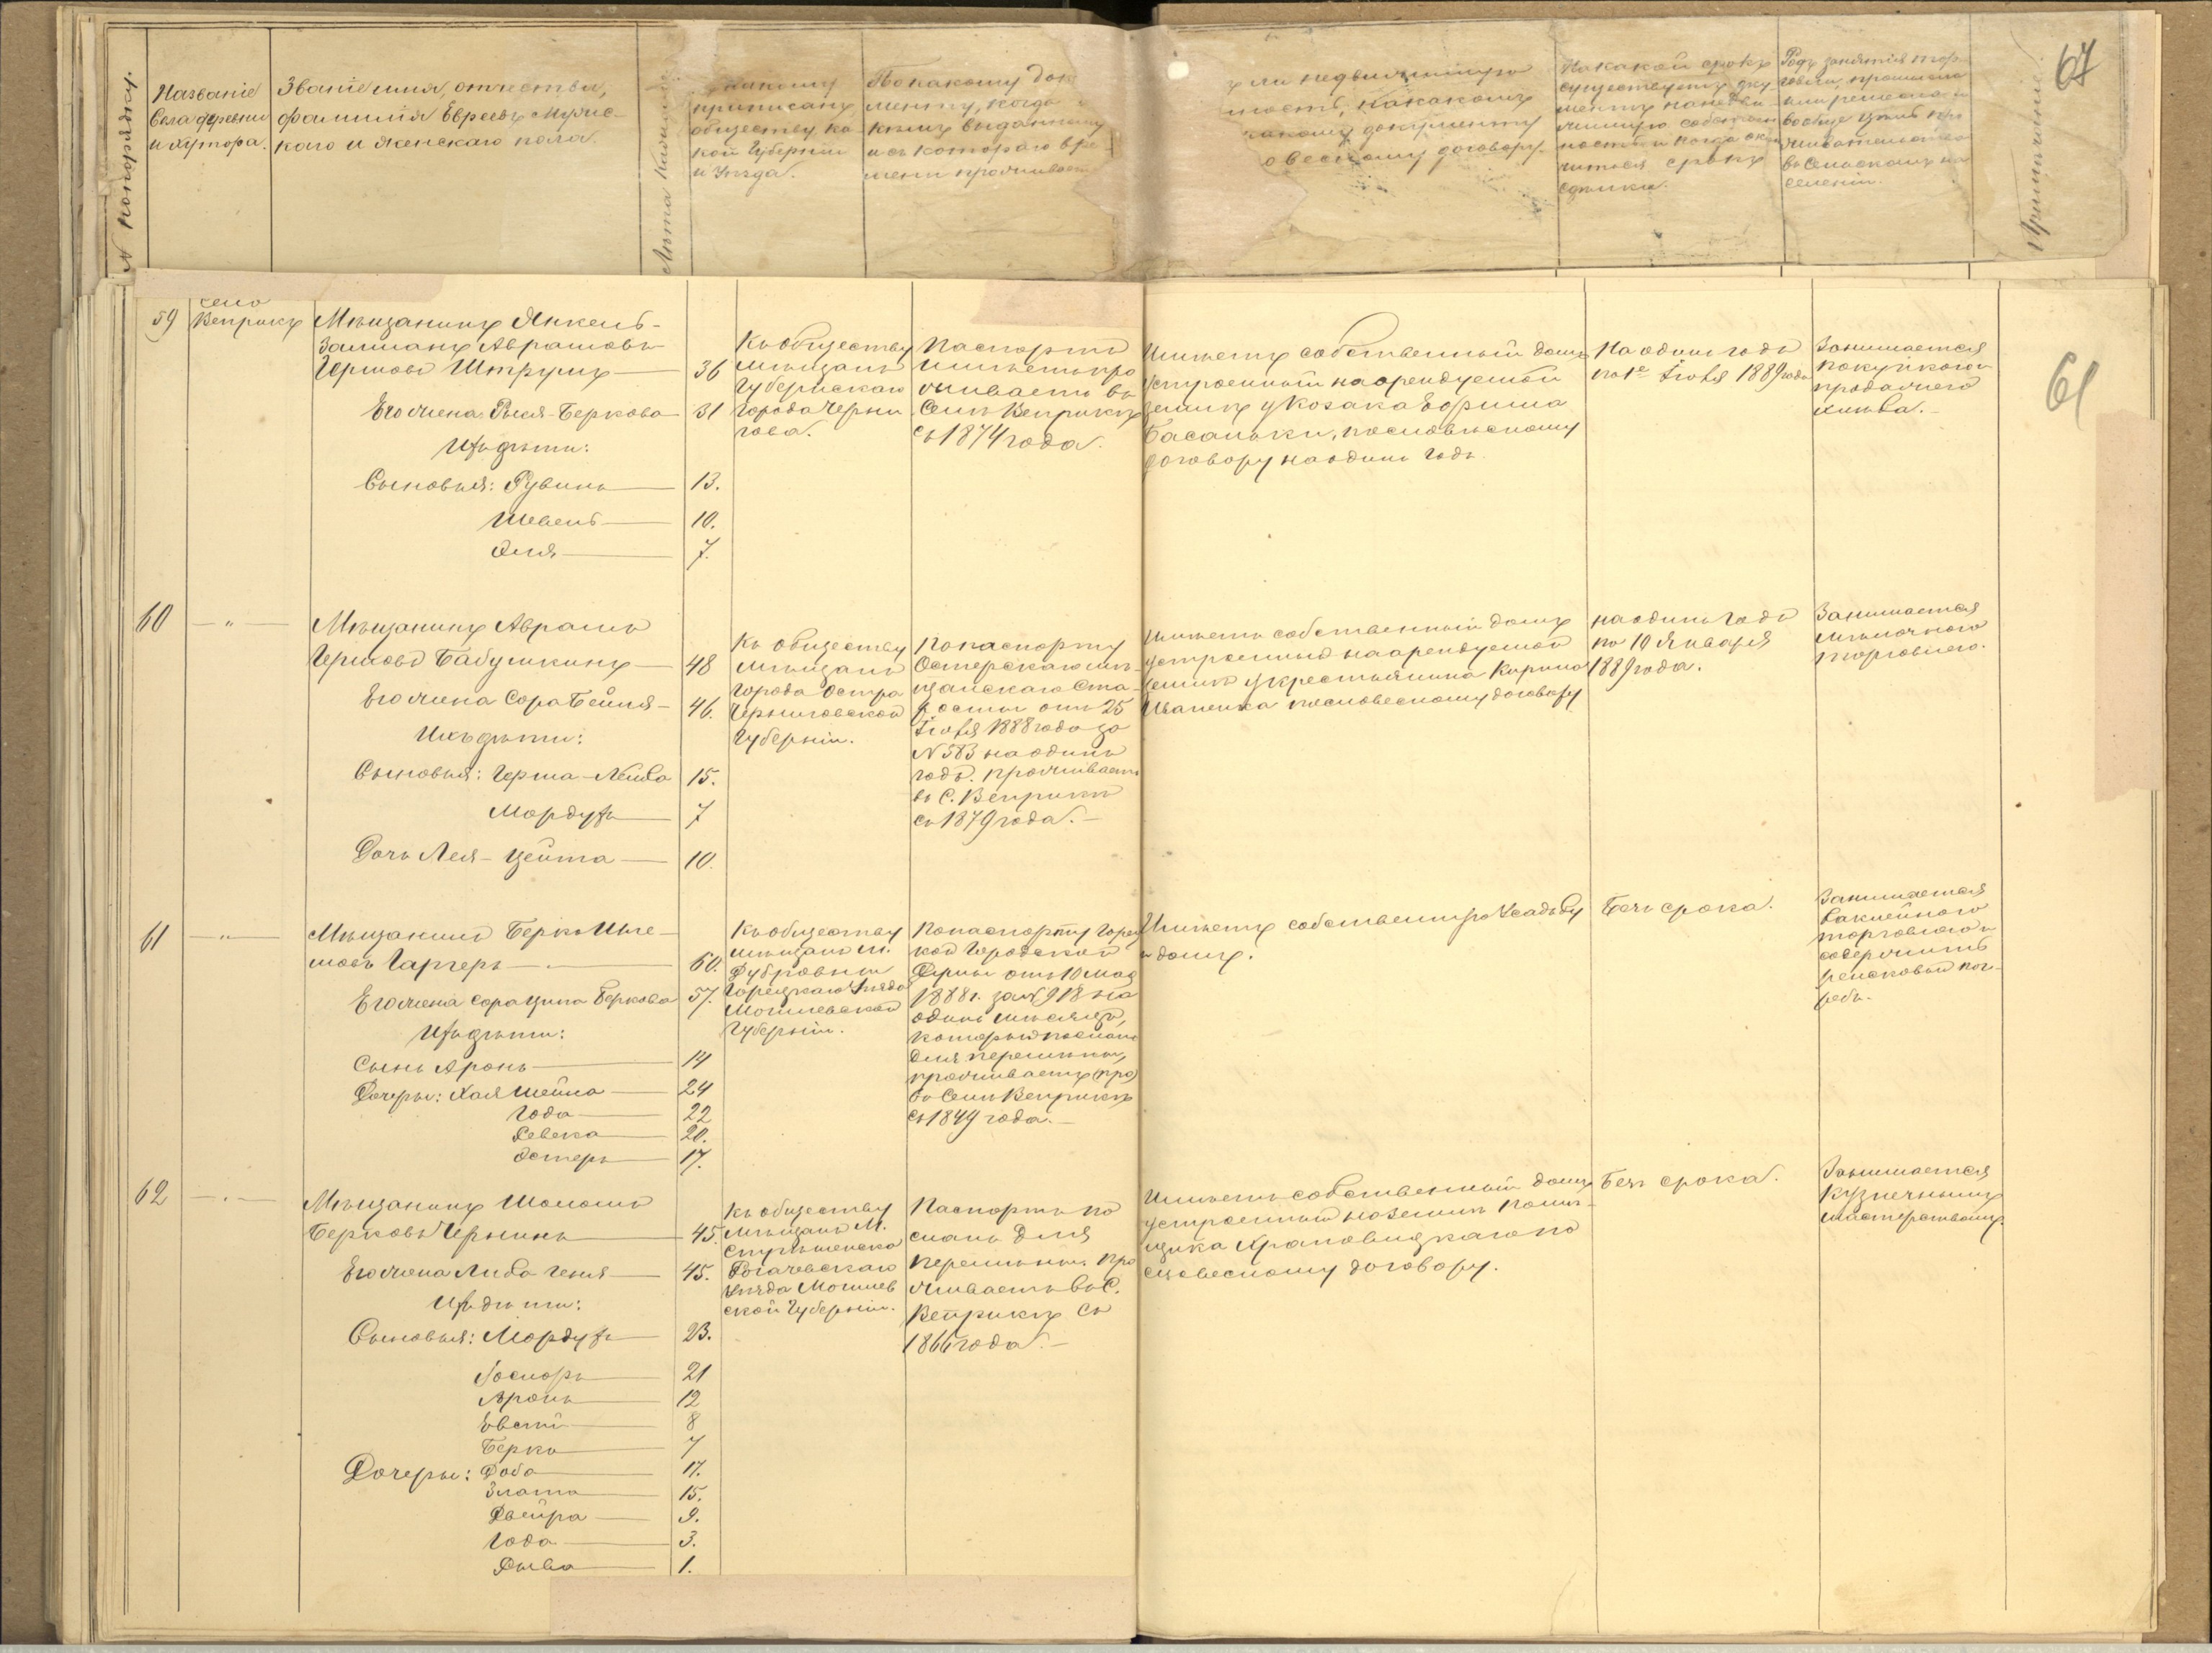 № по порядку.
Названіе
села деревни
и хутора.
Званіе имя, отчество,
фамилія Евреевъ Мужес-
каго и Женскаго пола.
Лѣта
какому
приписанъ
обществу, ка
кой Губерніи
и Уѣзда.
По какому док
менту, когда
кѣмъ выданному
и съ котораго вре
мени проживаетъ
ли недвижимую
ность, на какомъ
какому документу
словесному договору.
На какой срокъ
существуетъ доку
ментъ на недви
жимую собствен
ность и когда окан
чивается срокъ
Родъ занятія тор
говли, промысла
или ремесла и
вообще цѣль про
живательства
въ Сельскомъ на
селеніи.
Примѣчаніе.
67
61
59
село
Веприкъ
Мѣщанинъ Янкель-
Залманъ Аврамовъ
Гершовъ Штрумъ
36
Его жена Рыся-Беркова
31
Ихъ дѣти:
Сыновья: Рувинъ
13.
Шевель
10.
Эля
7.
Къ обществу
мѣщанъ
Губернскаго
города Черни
гова.
Паспортъ
имѣетъ про
живаетъ въ
Селѣ Веприкъ
съ 1874 года.
Имѣетъ собственный домъ
устроенный на арендуемой
землѣ у Козака Ефима
Басаньки, по словесному
договору на одинъ годъ.
На одинъ годъ
по 1е Іюля 1889 года
Занимается
покупкою и
продажею
хлѣба.
60
Мѣщанинъ Аврамъ
Гершовъ Бабушкинъ
48
Его жена Сора Бейля
46.
Ихъ дѣти:
Сыновья: Герша-Лейба
15.
Мордухъ
7
Дочь Лея-Цейта
10.
Къ обществу
мѣщанъ
города Остра
Черниговской
Губерніи.
По паспорту
Остерскаго мѣ-
щанскаго Ста-
росты отъ 25
Іюля 1888 года за
№ 583 на одинъ
годъ. проживаетъ
въ С. Веприкъ
съ 1879 года.
Имѣетъ собственный домъ
устроенный на арендуемой
землѣ у крестьянина Кирила
Иваненка по словесному договору
на одинъ годъ
по 10 Января
1889 года.
Занимается
мѣлочною
торговлею.
61
Мѣщанинъ Берко
Гаргеръ
60.
Его жена Сора Ципа Беркова
57.
Ихъ дѣти:
Сынъ Аронъ
14
Дочеры: Хая Шейна
24
Года
22
Ревека
20.
Эстеръ
17.
Къ обществу
мѣщанъ М.
Дубровны
Горецкаго Уѣзда
Могилевской
Губерніи.
По паспорту Горец
кой Городской
Думы отъ 10 Мая
1888 г. за № 918 на
одинъ мѣсяцъ,
который посланъ
для перемѣны,
проживаетъ (про)
въ Селѣ Веприкъ
съ 1849 года.
Имѣетъ собственную Усадьбу
и домъ.
Безъ срока.
Занимается
бакалейною
торговлею и
содержитъ
ренсковый пог-
ребъ.
62
Мѣщанинъ Шоломъ
Берковъ Чернинъ
45.
Его жена Либа Геня
45.
Ихъ дѣти:
Сыновья: Мордухъ
23.
21
Аронъ
12
8
Берка
7
Дочеры: Доба
17.
Злата
15.
Двейра
9.
Года
3.
1.
Къ обществу
мѣщанъ М.
Рогачевскаго
Уѣзда Могилев
ской Губерніи.
Паспортъ по
сланъ для
перемѣны. про
живаетъ въ С.
Веприкъ съ
1866 года.
Имѣетъ собственный домъ
устроенный на землѣ помѣ-
щика Храповицкаго по
словесному договору.
Безъ срока.
Занимается
Кузнечнымъ
мастерствомъ.